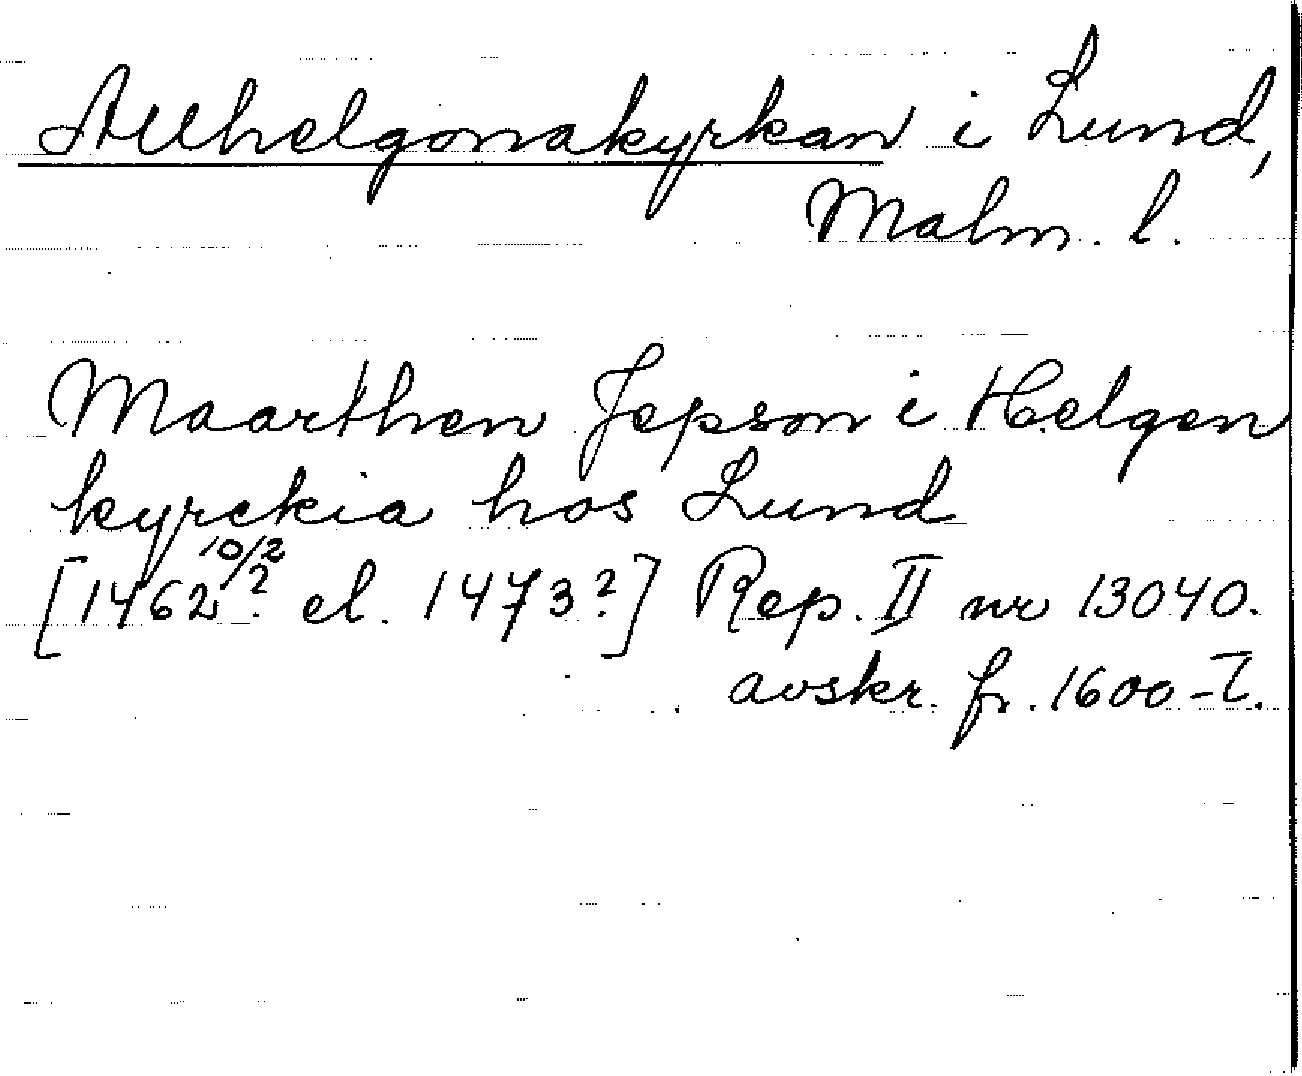 Allhelgonakyrkan i Lund,
Malm. l.
Maarthen Jepson i Helgen
kyrckia hos Lund
[1462 10/2 ? el. 1473?] Rep. II nr 13040.
avskr. fr. 1600-T.